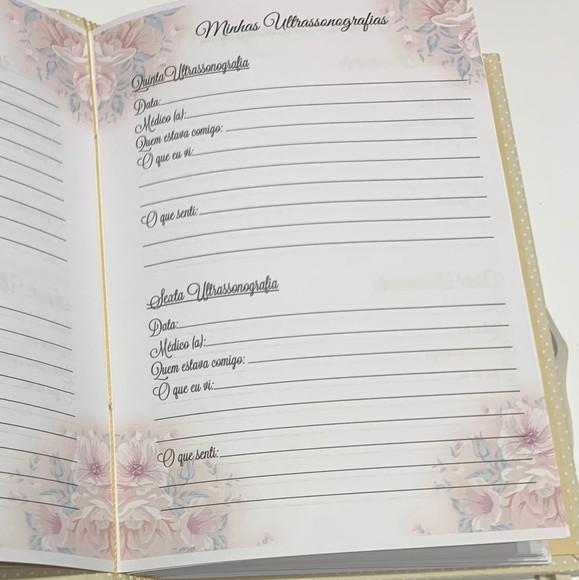 Minhas Ultrassonografias
Quinta Ultrassonografia
Data:
Médico (a):
Quem estava comigo:
O que eu vi:
O que senti:
Sexta Ultrassonografia
Data:
Médico (a):
Quem estava comigo:
O que eu vi:
O que senti: